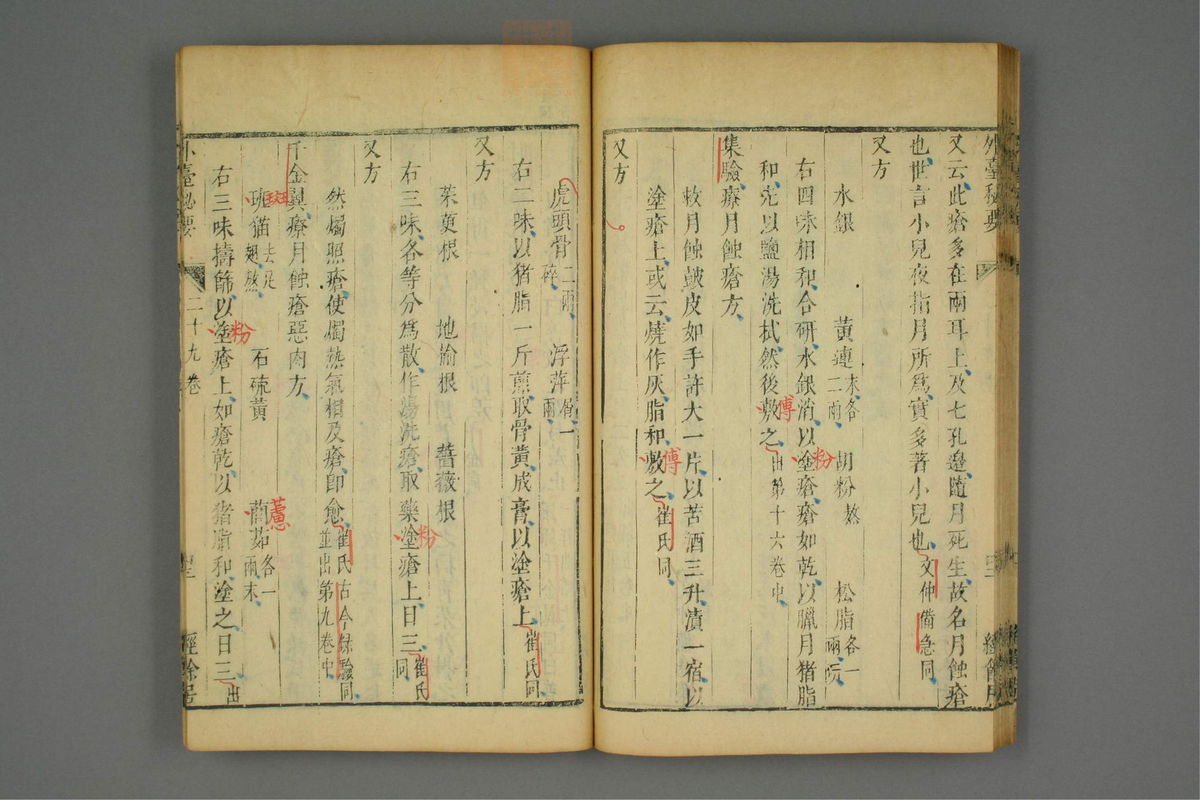 外臺秘要
又云此瘡多在兩耳上及七孔邊隨月死生故名月蝕瘡
也世言小兒夜指月所爲實多著小兒也文仲備急同
又方
水銀 黃連末各二兩 胡粉熬 松脂各一兩
右四味相和合研水銀消以塗瘡瘡如乾以臘月猪脂
粉
和先以鹽湯洗拭然後敷之出第十六卷中
傅
集驗療月蝕瘡方
救月蝕皷皮如手許大一片以苦酒三升漬一宿以
塗瘡上或云燒作灰脂和敷之崔氏同
傅
又方
虎頭骨二兩碎 浮萍屑一兩
右二味以猪脂一斤煎取骨黃成膏以塗瘡上崔氏同
又方
茱萸根 地榆根 薔薇根
右三味各等分爲散作湯洗瘡取藥塗瘡上日三崔氏同
粉
又方
然燭照瘡使燭熱氣相及瘡卽愈崔氏古今錄驗同並出第九卷中
千金翼療月蝕瘡惡肉方
斑猫去足翅熬 石硫黃 茹各一兩末
斑
右三味擣篩以塗瘡上如瘡乾以猪脂和塗之日三出
粉
外臺秘要 二十九卷 經餘居